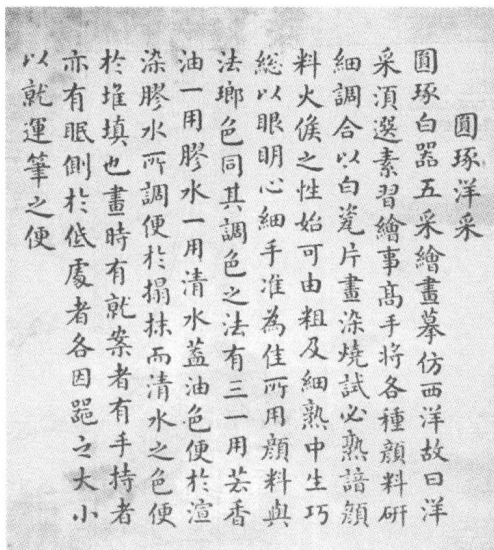 圓琢洋采
圓琢白器五采繪畫摹仿西洋故曰洋
采湏選素習繪事髙手將各種顔料研
細調合以白瓷片畫染燒試必熟諳顔
料火候之性始可由粗及細熟中生巧
總以眼明心細手准為佳所用顔料與
法瑯色同其調色之法有三一用芸香
油一用膠水一用清水葢油色便於渲
染膠水所調便於搨抹而清水之色便
於堆填也畫時有就案者有手持者
亦有眠側於低處者各因器之大小
以就運筆之便